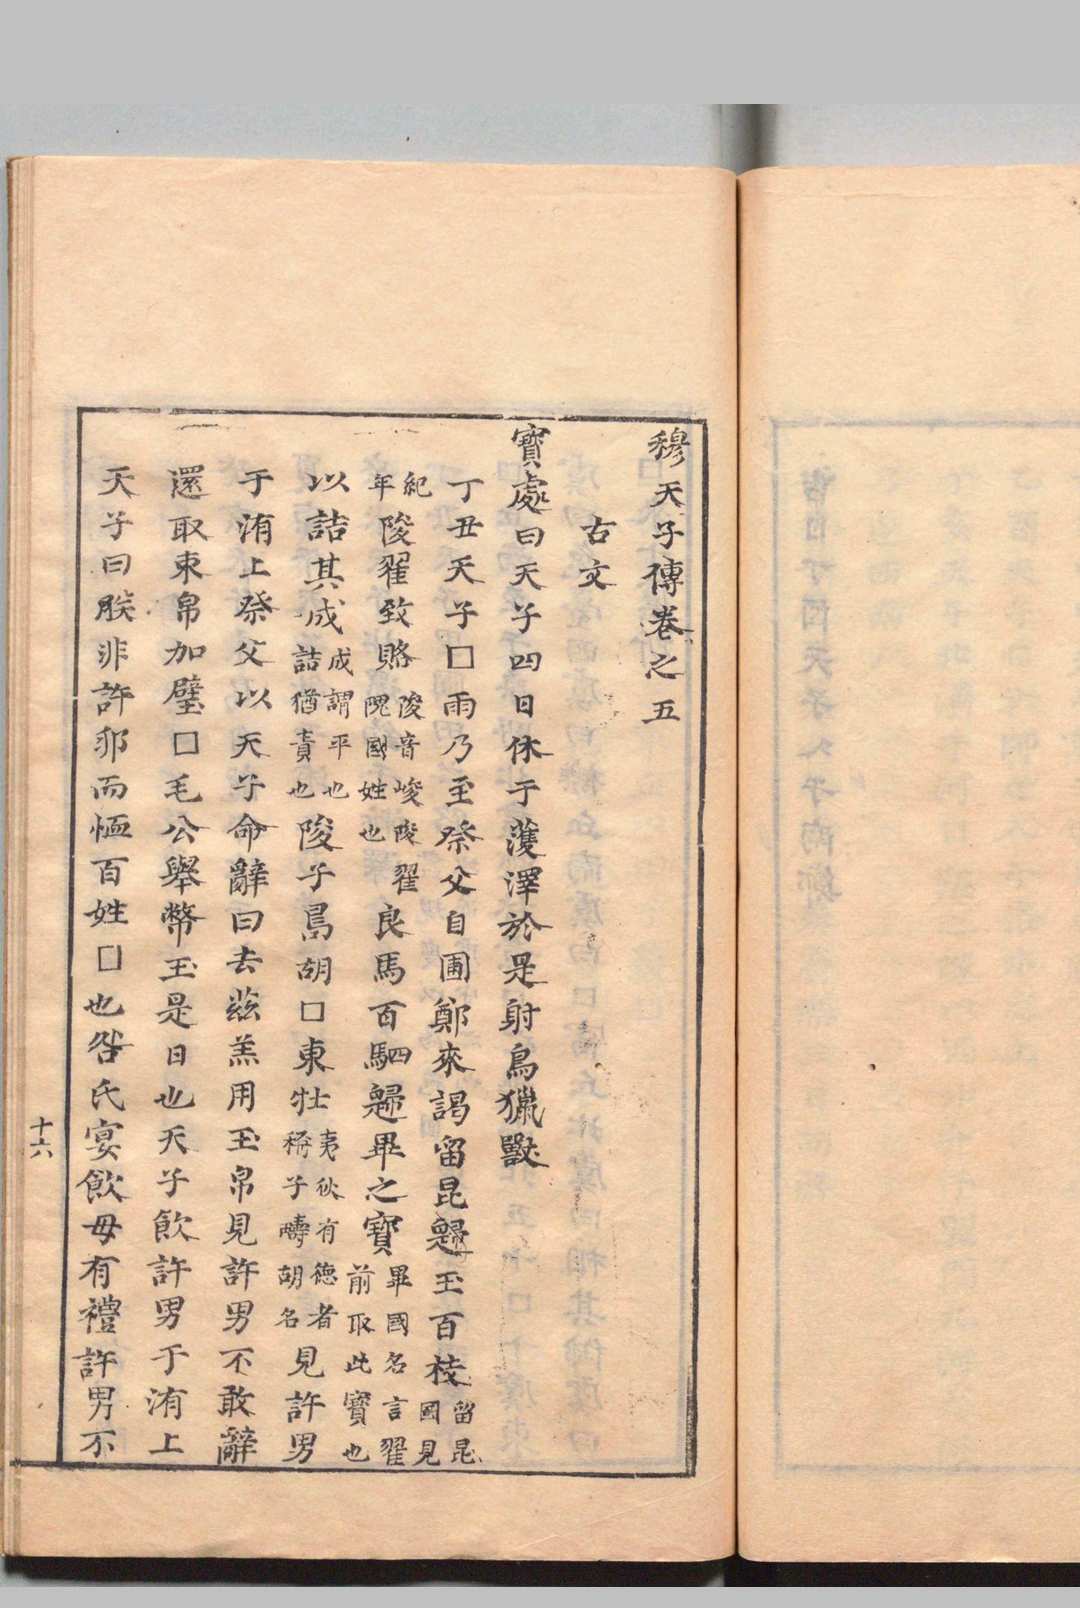 穆天子傳卷之五
古文
寶處曰天子四日休于濩澤於是射鳥獵獸
丁丑天子□雨乃至祭父自圃鄭來謁留昆歸玉百枝留昆國見
紀年陖翟致賂陖音峻陖翟隗國姓也良馬百駟歸畢之寶畢國名言翟前取此寶也
以詰其成成謂平也詰猶責也陖子島胡□東牡夷狄有德者稱子嶹胡名見許男
于洧上祭父以天子命辭曰去茲羔用玉帛見許男不敢辭
還取束帛加璧□毛公舉幣玉是日也天子飲許男于洧上
天子曰朕非許邦而恤百姓□也咎氏宴飲毋有禮許男不
十六